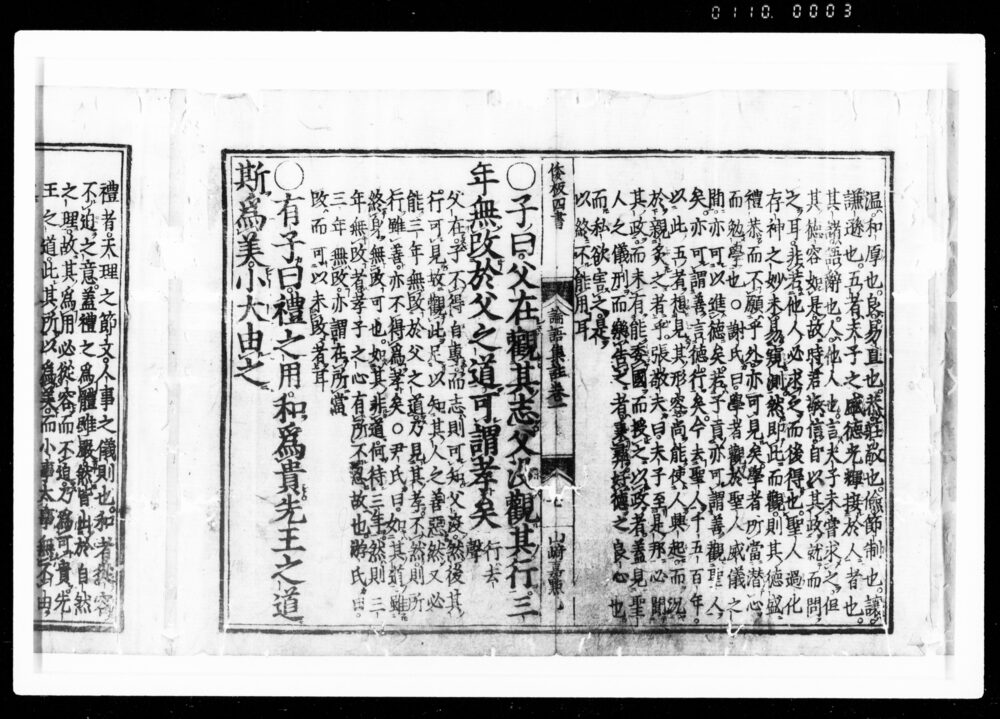 0110. 0003
温。和厚也。良。易直也。恭。莊敬也。儉。節制也。讓。
謙遜也。五者夫子之盛德光輝接於人者也。
其。諸。語辭也。人。他人也。言夫子未嘗求之。但
其德容如是。故時君敬信。自以其政就而問
之耳。非若他人必求之而後得也。聖人過化
存神之妙。未易窺測。然即此而觀。則其德盛
禮恭。而不願乎外。亦可見矣。學者所當潜心
而勉學也。○謝氏曰。學者觀於聖人威儀之
間。亦可以進德矣。若子貢亦可謂善觀聖人
矣。亦可謂善言德行矣。今去聖人千五百年。
以此五者想見其形容。尚能使人興起。而況
於親炙之者乎。張敬夫曰。夫子至是邦。必聞
其政。而未有能委國而授之以政者。蓋見聖
人之儀刑而樂告之者。秉彝好德之良心也。
而私欲害之。是
以終不能用耳
倭板四書
論語集註卷一
七
山崎嘉點
○子曰。父在觀其志。父沒觀其行。三
年無改於父之道。可謂孝矣。行去聲
父在。子不得自專。而志則可知。父沒。然後其
行可見。故觀此。足以知其人之善惡。然又必
能三年無改於父之道。乃見其孝。不然。則所
行雖善。亦不得爲孝矣。○尹氏曰。如其道。雖
終身無改可也。如其非道。何待三年。然則三
年無改者。孝子之心有所不忍故也。游氏曰。
三年無改。亦謂在所當
改。而可以未改者耳
○有子曰。禮之用。和爲貴。先王之道
斯爲美。小大由之
禮者。天理之節文。人事之儀則也。和者。從容
不迫之意。蓋禮之爲體雖嚴。然皆出於自然
之理。故其爲用。必從容而不迫。乃爲可貴。先
王之道。此其所以爲美。而小事大事無不由